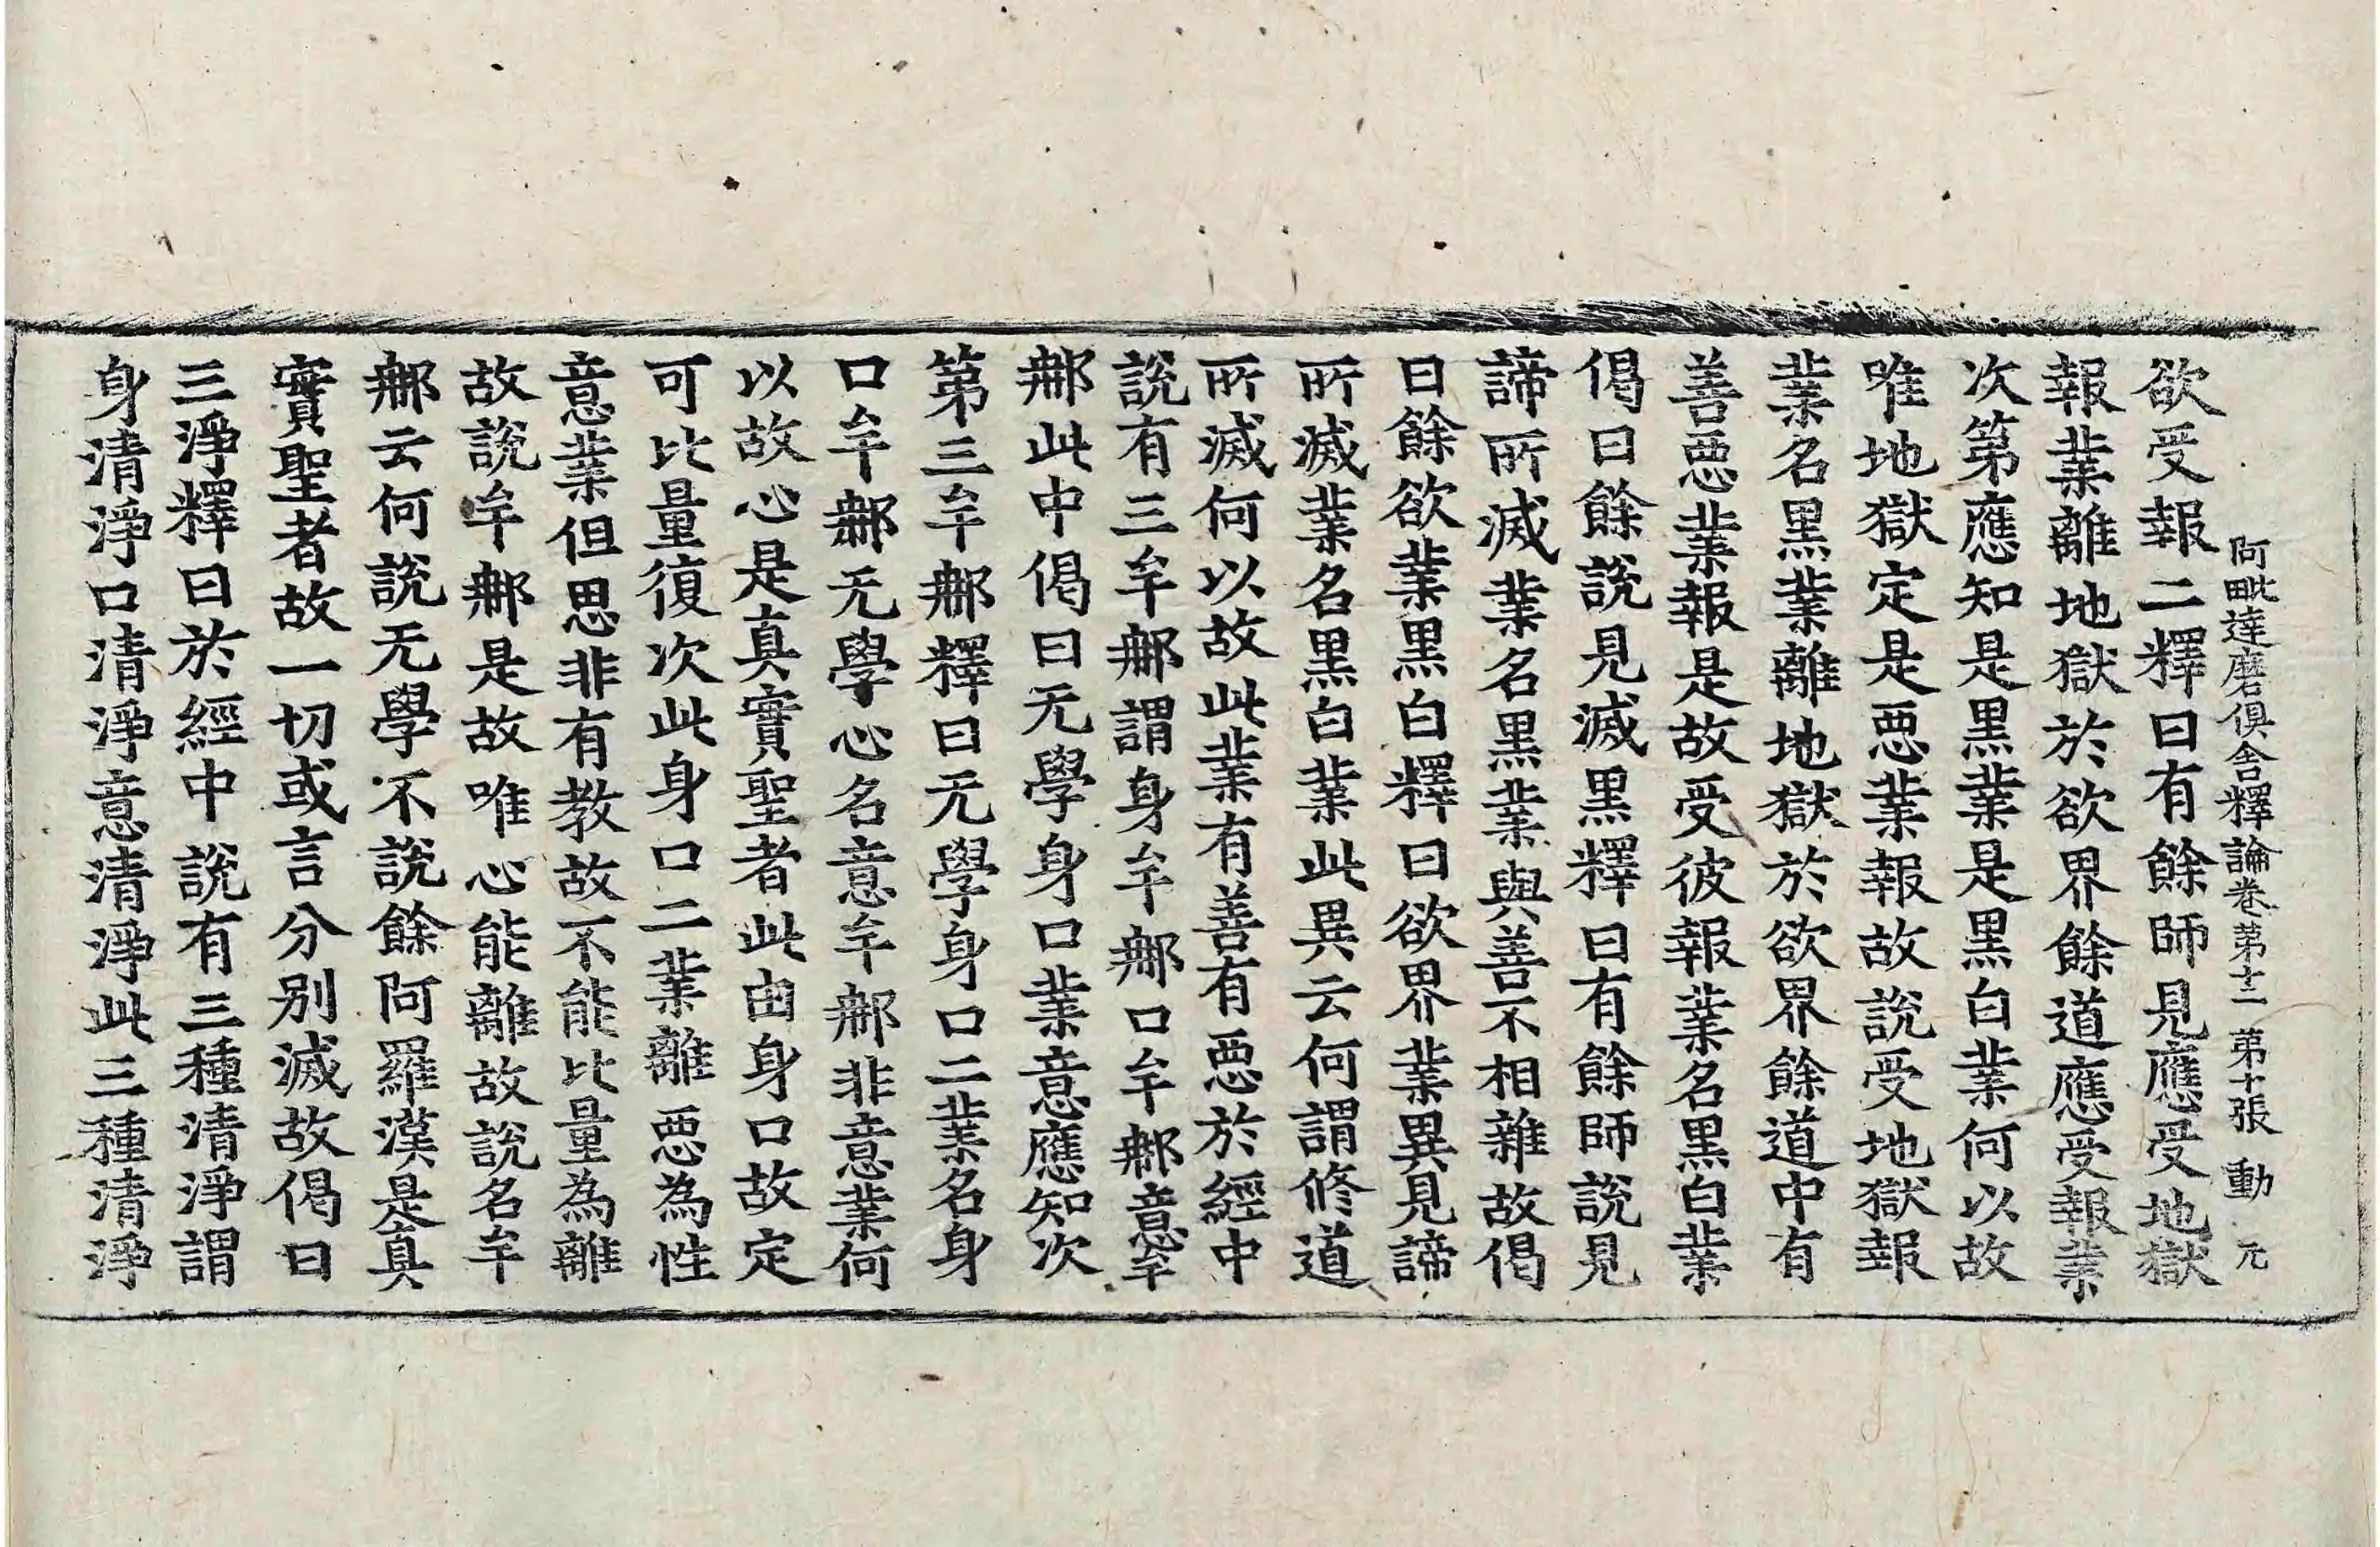 阿毗達磨俱舍釋論卷第十二 第十張 動 元
欲受報二釋曰有餘師見應受地獄
報業離地獄於欲界餘道應受報業
次第應知是黑業是黑白業何以故
唯地獄定是惡業報故說受地獄報
業名黑業離地獄於欲界餘道中有
善惡業報是故受彼報業名黑白業
偈曰餘說見滅黑釋曰有餘師說見
諦所滅業名黑業與善不相雜故偈
曰餘欲業黑白釋曰欲界業異見諦
所滅業名黑白業此異云何謂修道
所滅何以故此業有善有惡於經中
說有三牟那謂身牟那口牟那意牟
那此中偈曰无學身口業意應知次
第三牟那釋曰无學身口二業名身
口牟那无學心名意牟那非意業何
以故心是真實聖者此由身口故定
可比量復次此身口二業離惡為性
意業但思非有教故不能比量為離
故說牟那是故唯心能離故說名牟
那云何說无學不說餘阿羅漢是真
實聖者故一切或言分別滅故偈曰
三淨釋曰於經中說有三種清淨謂
身清淨口清淨意清淨此三種清淨